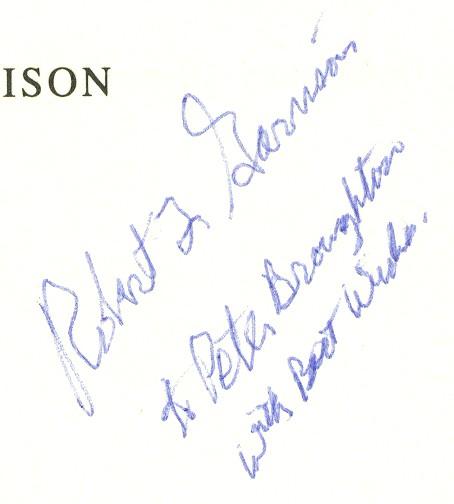 ISON
Robert F Garrison
to Peter Broughton
with Best Wishes.